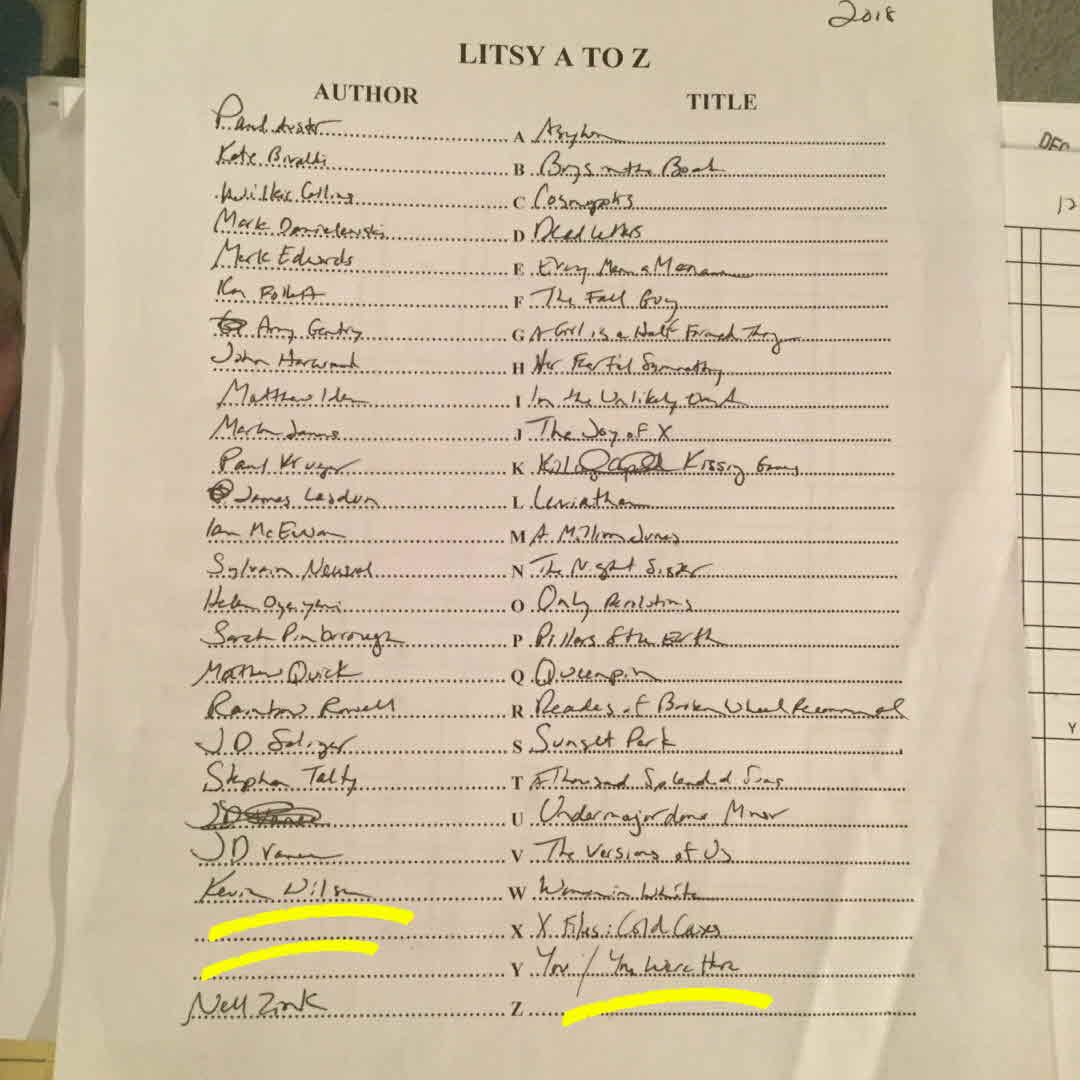 2018
LITSY A TO Z
AUTHOR TITLE
Paul Auster A Asylum
Kate Biralli B Boys in the Boat
Wilkie Collins C Cosmopolis
Mark Danielewski D Dead Letters
Mark Edwards E Every Man a Menace
Ken Follett F The Fall Guy
Amy Gentry G A Girl is a Half Formed Thing
John Harwood H Her Fearful Symmetry
Matthew Iden I In the Unlikely Event
Marlon James J The Joy of X
Paul Krueger K Kissing Games
James Lasdun L Leviathan
Ian McEwan M A Million Junes
Sylvain Neuvel N The Night Sister
Helen Oyeyemi O Only Revolutions
Sarah Pinborough P Pillars of the Earth
Matthew Quick Q Queenpin
Rainbow Rowell R Readers of Broken Wheel Recommend
JD Salinger S Sunset Park
Stephan Talty T A Thousand Splendid Suns
JD U Undermajordomo Minor
JD Vance V The Versions of Us
Kevin Wilson W Woman in White
X X Files: Cold Cases
Y You / You Were Here
Nell Zink Z
DEC
12
Y